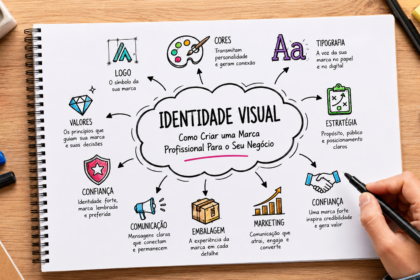 CORES
Transmitam
personalidade
e geram conexão
Aa
TIPOGRAFIA
A voz da sua
marca no papel
e no digital
LOGO
O símbolo da
sua marca
IDENTIDADE VISUAL
Como Criar uma Marca
Profissional Para o Seu Negócio
VALORES
Os princípios que
guiam sua marca
e suas decisões
ESTRATÉGIA
Propósito, público
e posicionamento
claros
CONFIANÇA
Identidade forte,
marca lembrada
e preferida
COMUNICAÇÃO
Mensagens claras
que conectam
e permanecem
EMBALAGEM
A experiência da
marca em cada
detalhe
MARKETING
Comunicação que
atrai, engaja e
converte
CONFIANÇA
Uma marca forte
inspira credibilidade
e gera valor